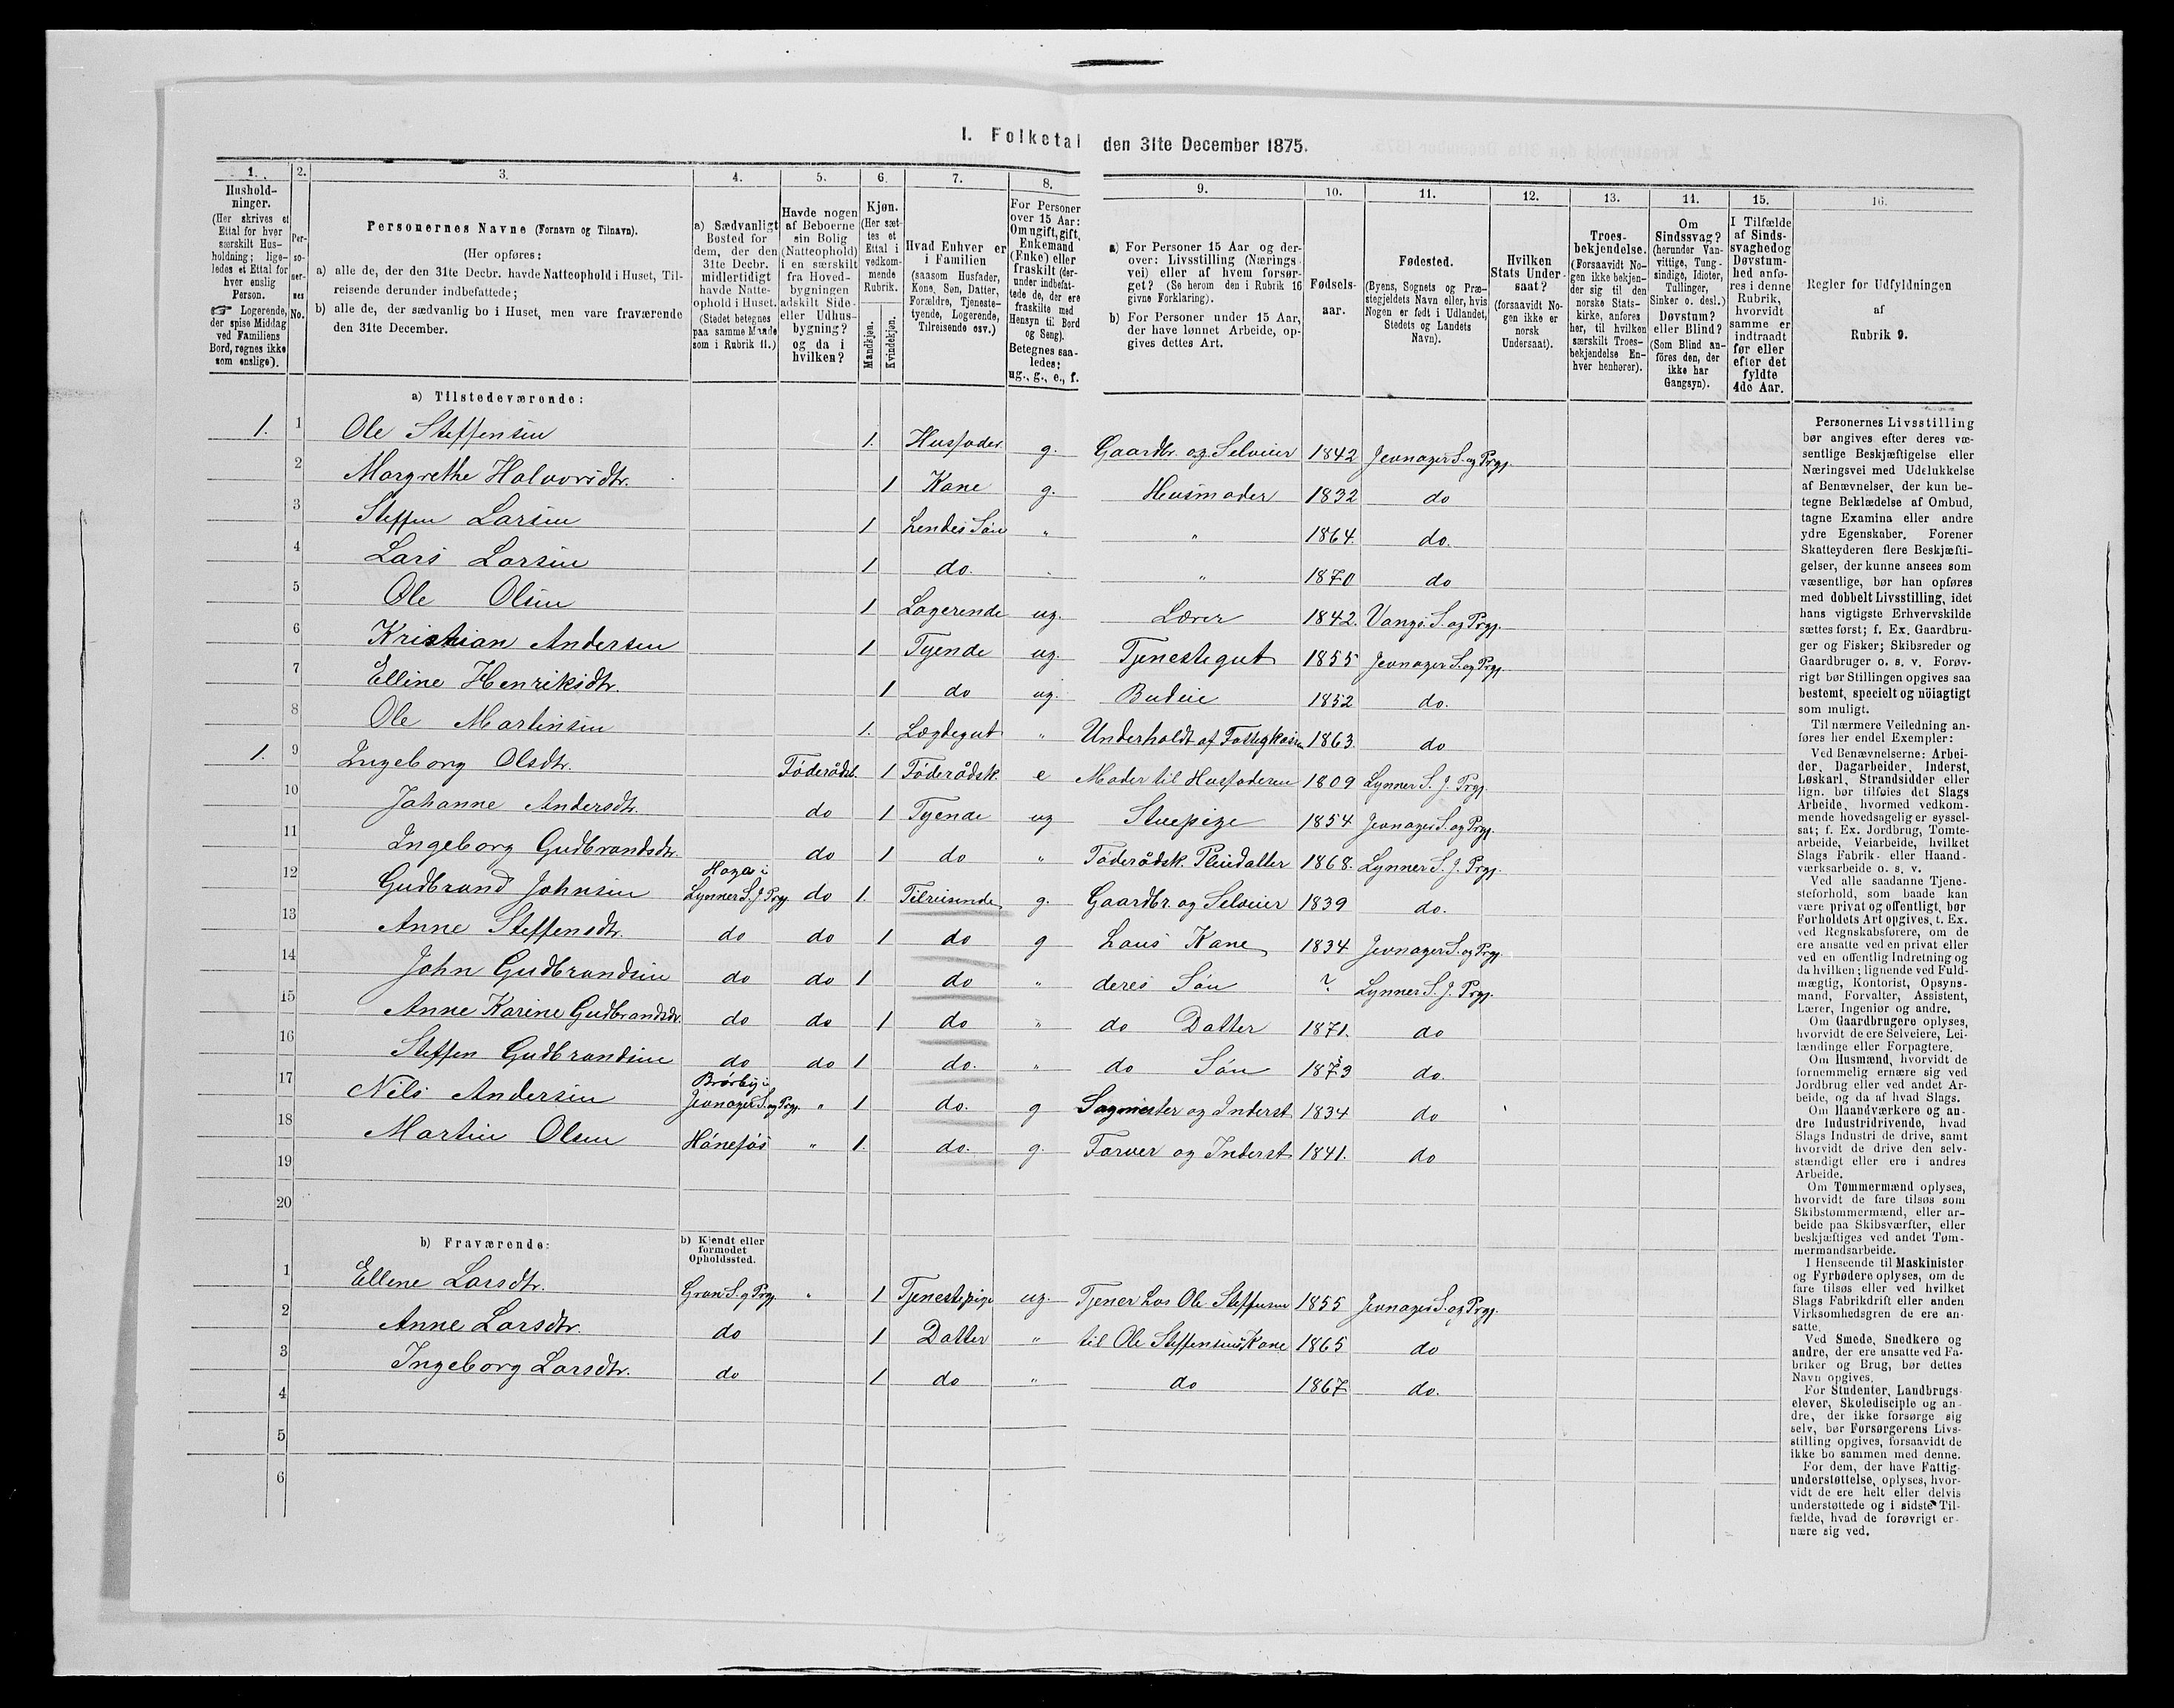 I. Folketal den 31te December 1875.
1.
Hushold-
ninger.
(Her skrives et
Ettal for hver
særskilt Hus-
holdning; lige-
ledes et Ettal for
hver enslig
Person.
☞ Logerende,
der spise Middag
ved Familiens
Bord, regnes ikke
som enslige).
2.
Per-
so-
ner-
nes
No.
3.
Personernes Navne (Fornavn og Tilnavn).
(Her opføres:
a) alle de, der den 31te Decbr. havde Natteophold i Huset, Til-
reisende derunder indbefattede;
b) alle de, der sædvanlig bo i Huset, men vare fraværende
den 31te December.
4.
a) Sædvanligt
Bosted for
dem, der den
31te Decbr.
midlertidigt
havde Natte-
ophold i Huset.
(Stedet betegnes
paa samme Maade
som i Rubrik 11.)
5.
Havde nogen
af Beboerne
sin Bolig
(Natteophold)
i en særskilt
fra Hoved-
bygningen
adskilt Side-
eller Udhus-
bygning?
og da i
hvilken?
6.
Kjøn.
(Her sæt-
tes et
Ettal i
vedkom-
mende
Rubrik.
Mandkjøn.
Kvindekjøn.
7.
Hvad Enhver er
i Familien
(saasom Husfader,
Kone, Søn, Datter,
Forældre, Tjeneste-
tyende, Logerende,
Tilreisende osv.)
8.
For Personer
over 15 Aar:
Om ugift, gift,
Enkemand
(Enke) eller
fraskilt (der-
under indbefat-
tede de, der ere
fraskilte med
Hensyn til Bord
og Seng).
Betegnes saa-
ledes:
ug., g., e., f.
9.
a) For Personer 15 Aar og der-
over: Livsstilling (Nærings-
vei) eller af hvem forsør-
get? (Se herom den i Rubrik 16
givne Forklaring).
b) For Personer under 15 Aar,
der have lønnet Arbeide, op-
gives dettes Art.
10.
Fødsels-
aar.
11.
Fødested.
(Byens, Sognets og Præ-
stegjeldets Navn eller, hvis
Nogen er født i Udlandet,
Stedets og Landets
Navn).
12.
Hvilken
Stats Under-
saat?
(forsaavidt No-
gen ikke er
norsk
Undersaat).
13.
Troes-
bekjendelse.
(Forsaavidt No-
gen ikke bekjen-
der sig til den
norske Stats-
kirke, anføres
her, til hvilken
særskilt Troes-
bekjendelse En-
hver henhører).
14.
Om
Sindssvag?
(herunder Van-
vittige, Tung-
sindige, Idioter,
Tullinger,
Sinker o. desl.)
Døvstum?
eller Blind?
(Som Blind an-
føres den, der
ikke har
Gangsyn).
15.
I Tilfælde
af Sinds-
svaghed og
Døvstum-
hed anfø-
res i denne
Rubrik,
hvorvidt
samme er
indtraadt
før eller
efter det
fyldte
4de Aar.
16.
Regler for Udfyldningen
af
Rubrik 9.
a) Tilstedeværende:
1. 1 Ole Steffensen 1. Husfader g. Gaardbr. og Selveier 1842 Jevnager S. og Prgj.
2 Margrethe Halvorsdtr. 1 Kone g. Husmoder 1832 do
3 Steffen Larsen 1 hendes Søn " " 1864. do.
4 Lars Larsen 1 do. " 1870 do
5 Ole Olsen 1 Logerende ug. Lærer 1842. Vangs S. og Prgj.
6 Kristian Andersen 1 Tyende ug. Tjenestegut 1855 Jevnager S. og Prgj.
7 Elline Henriksdtr. 1 do ug. Budeie 1852 do.
8 Ole Martinsen 1. Lægdegut " Underholdt af Fattigkassen 1863 do
1. 9 Ingeborg Olsdtr. Föderådsb. 1 Föderådsk. e Moder til Husfaderen 1809 Lynner S. J. Prgj.
10 Johanne Andersdtr. do 1 Tyende ug Stuepige 1854 Jevnager S. og Prgj.
11 Ingeborg Gudbrandsdtr. do 1 do " Föderådsk. Pleiedatter 1868. Lynner S. J. Prgj.
12 Gudbrand Johnsen Haga i Lynner S. J. Prgj. do 1. Tilreisende g. Gaardbr. og Selveier 1839 do.
13 Anne Steffensdtr. do do 1 do g hans Kone 1834 Jevnager S. og Prgj.
14 John Gudbrandsen do do 1 do " deres Søn ? Lynner S. J. Prgj.
15 Anne Karine Gudbrandsdr. do do 1 do " do Datter 1871. do
16 Steffen Gudbrandsen do do 1 do. " do Søn 1873 do.
17 Nils Andersen Brørby i Jevnager S. og Prgj. " 1 do. g Sagmester og Inderst 1834 do
18 Martin Olsen Hönefos " 1. do. g. Farver og Inderst 1841. do
19
20
b) Fraværende:
b) Kjendt eller
formodet
Opholdssted.
1 Ellene Larsdtr. Gran S. og Prgj. " 1 Tjenestepige ug. Tjener hos Ole Steffensen 1855 Jevnager S. og Prgj.
2 Anne Larsdtr. do 1 Datter " til Ole Steffensens Kone 1865 do
3 Ingeborg Larsdtr. do 1 do " do 1867 do.
4
5
6
Personernes Livsstilling
bør angives efter deres væ-
sentlige Beskjæftigelse eller
Næringsvei med Udelukkelse
af Benævnelser, der kun be-
tegne Beklædelse af Ombud,
tagne Examina eller andre
ydre Egenskaber. Forener
Skatteyderen flere Beskjæfti-
gelser, der kunne ansees som
væsentlige, bør han opføres
med dobbelt Livsstilling, idet
hans vigtigste Erhvervskilde
sættes først; f. Ex. Gaardbru-
ger og Fisker; Skibsreder og
Gaardbruger o. s. v. Forøv-
rigt bør Stillingen opgives saa
bestemt, specielt og nöiagtigt
som muligt.
Til nærmere Veiledning an-
føres her endel Exempler:
Ved Benævnelserne: Arbei-
der, Dagarbeider, Inderst,
Løskarl, Strandsidder eller
lign. bør tilføies det Slags
Arbeide, hvormed vedkom-
mende hovedsagelig er syssel-
sat; f. Ex. Jordbrug, Tomte-
arbeide, Veiarbeide, hvilket
Slags Fabrik- eller Haand-
værksarbeide o. s. v.
Ved alle saadanne Tjene-
steforhold, som baade kan
være privat og offentligt, bør
Forholdets Art opgives, t. Ex.
ved Regnskabsførere, om de
ere ansatte ved en privat eller
ved en offentlig Indretning og
da hvilken; lignende ved Fuld-
mægtig, Kontorist, Opsyns-
mand, Forvalter, Assistent,
Lærer, Ingeniør og andre.
Om Gaardbrugere oplyses,
hvorvidt de ere Selveiere, Lei-
lændinge eller Forpagtere.
Om Husmænd, hvorvidt de
fornemmelig ernære sig ved
Jordbrug eller ved andet Ar-
beide, og da af hvad Slags.
Om Haandværkere og an-
dre Industridrivende, hvad
Slags Industri de drive, samt
hvorvidt de drive den selv-
stændigt eller ere i andres
Arbeide.
Om Tømmermænd oplyses,
hvorvidt de fare tilsøs som
Skibstømmermænd, eller ar-
beide paa Skibsværfter, eller
beskjæftiges ved andet Tøm-
mermandsarbeide.
I Henseende til Maskinister
og Fyrbødere oplyses, om de
fare tilsøs eller ved hvilket
Slags Fabrikdrift eller anden
Virksomhedsgren de ere an-
satte.
Ved Smede, Snedkere og
andre, der ere ansatte ved Fa-
briker og Brug, bør dettes
Navn opgives.
For Studenter, Landbrugs-
elever, Skoledisciple og an-
dre, der ikke forsørge sig
selv, bør Forsørgerens Livs-
stilling opgives, forsaavidt de
ikke bo sammen med denne.
For dem, der have Fattig-
understøttelse, oplyses, hvor-
vidt de ere helt eller delvis
understøttede og i sidste Til-
fælde, hvad de forøvrigt er-
nære sig ved.